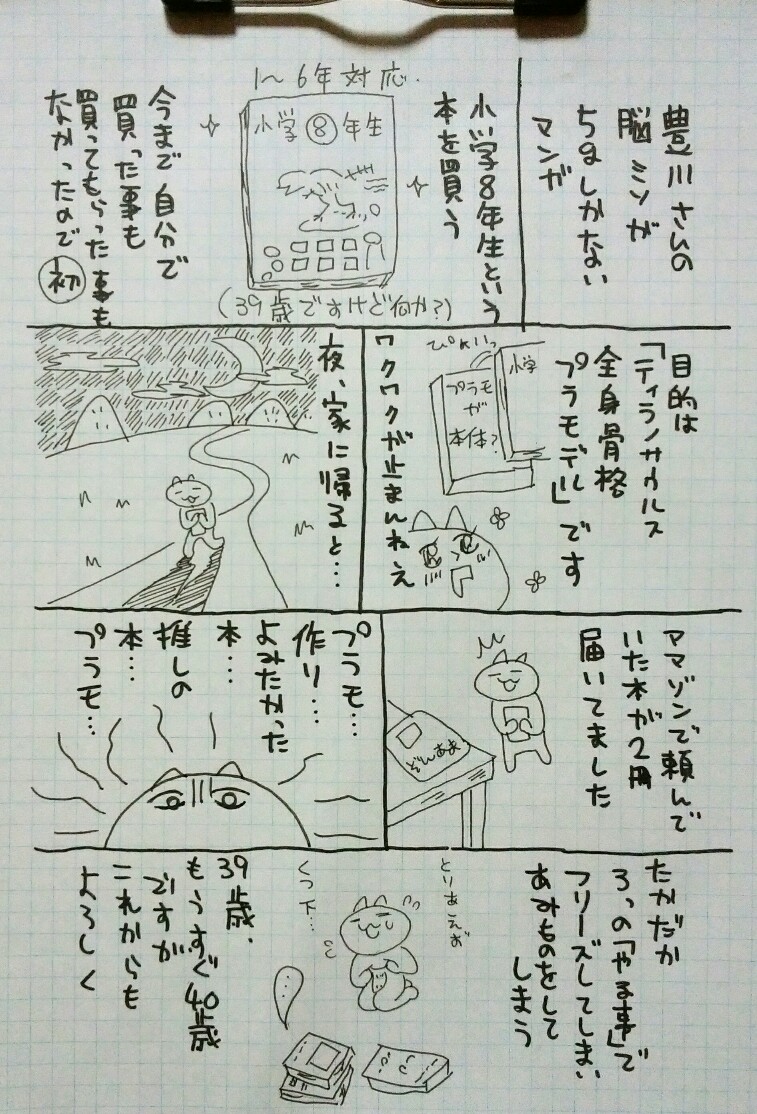 豊川さんの
脳ミソが
5gしかない
マンガ
小学8年生という
本を買う
1〜6年対応.
小学⑧年生
(39歳ですけど何か?)
今まで自分で
買った事も
買ってもらった事も
なかったので
初
目的は
「ティラノサウルス
全身骨格
プラモデル」です
小学
プラモ
が
本体?
ワクワクが止まんねえ
夜、家に帰ると…
ママゾンで頼んで
いた本が2冊
届いてました
ぞんあま
プラモ…
作り…
よみたかった
本…
推しの
本…
プラモ…
たかだか
3つの「やる事」で
フリーズしてしまい
あみものをして
しまう
とりあえず
くつ下…
39歳.
もうすぐ40歳
ですが
これからも
よろしく